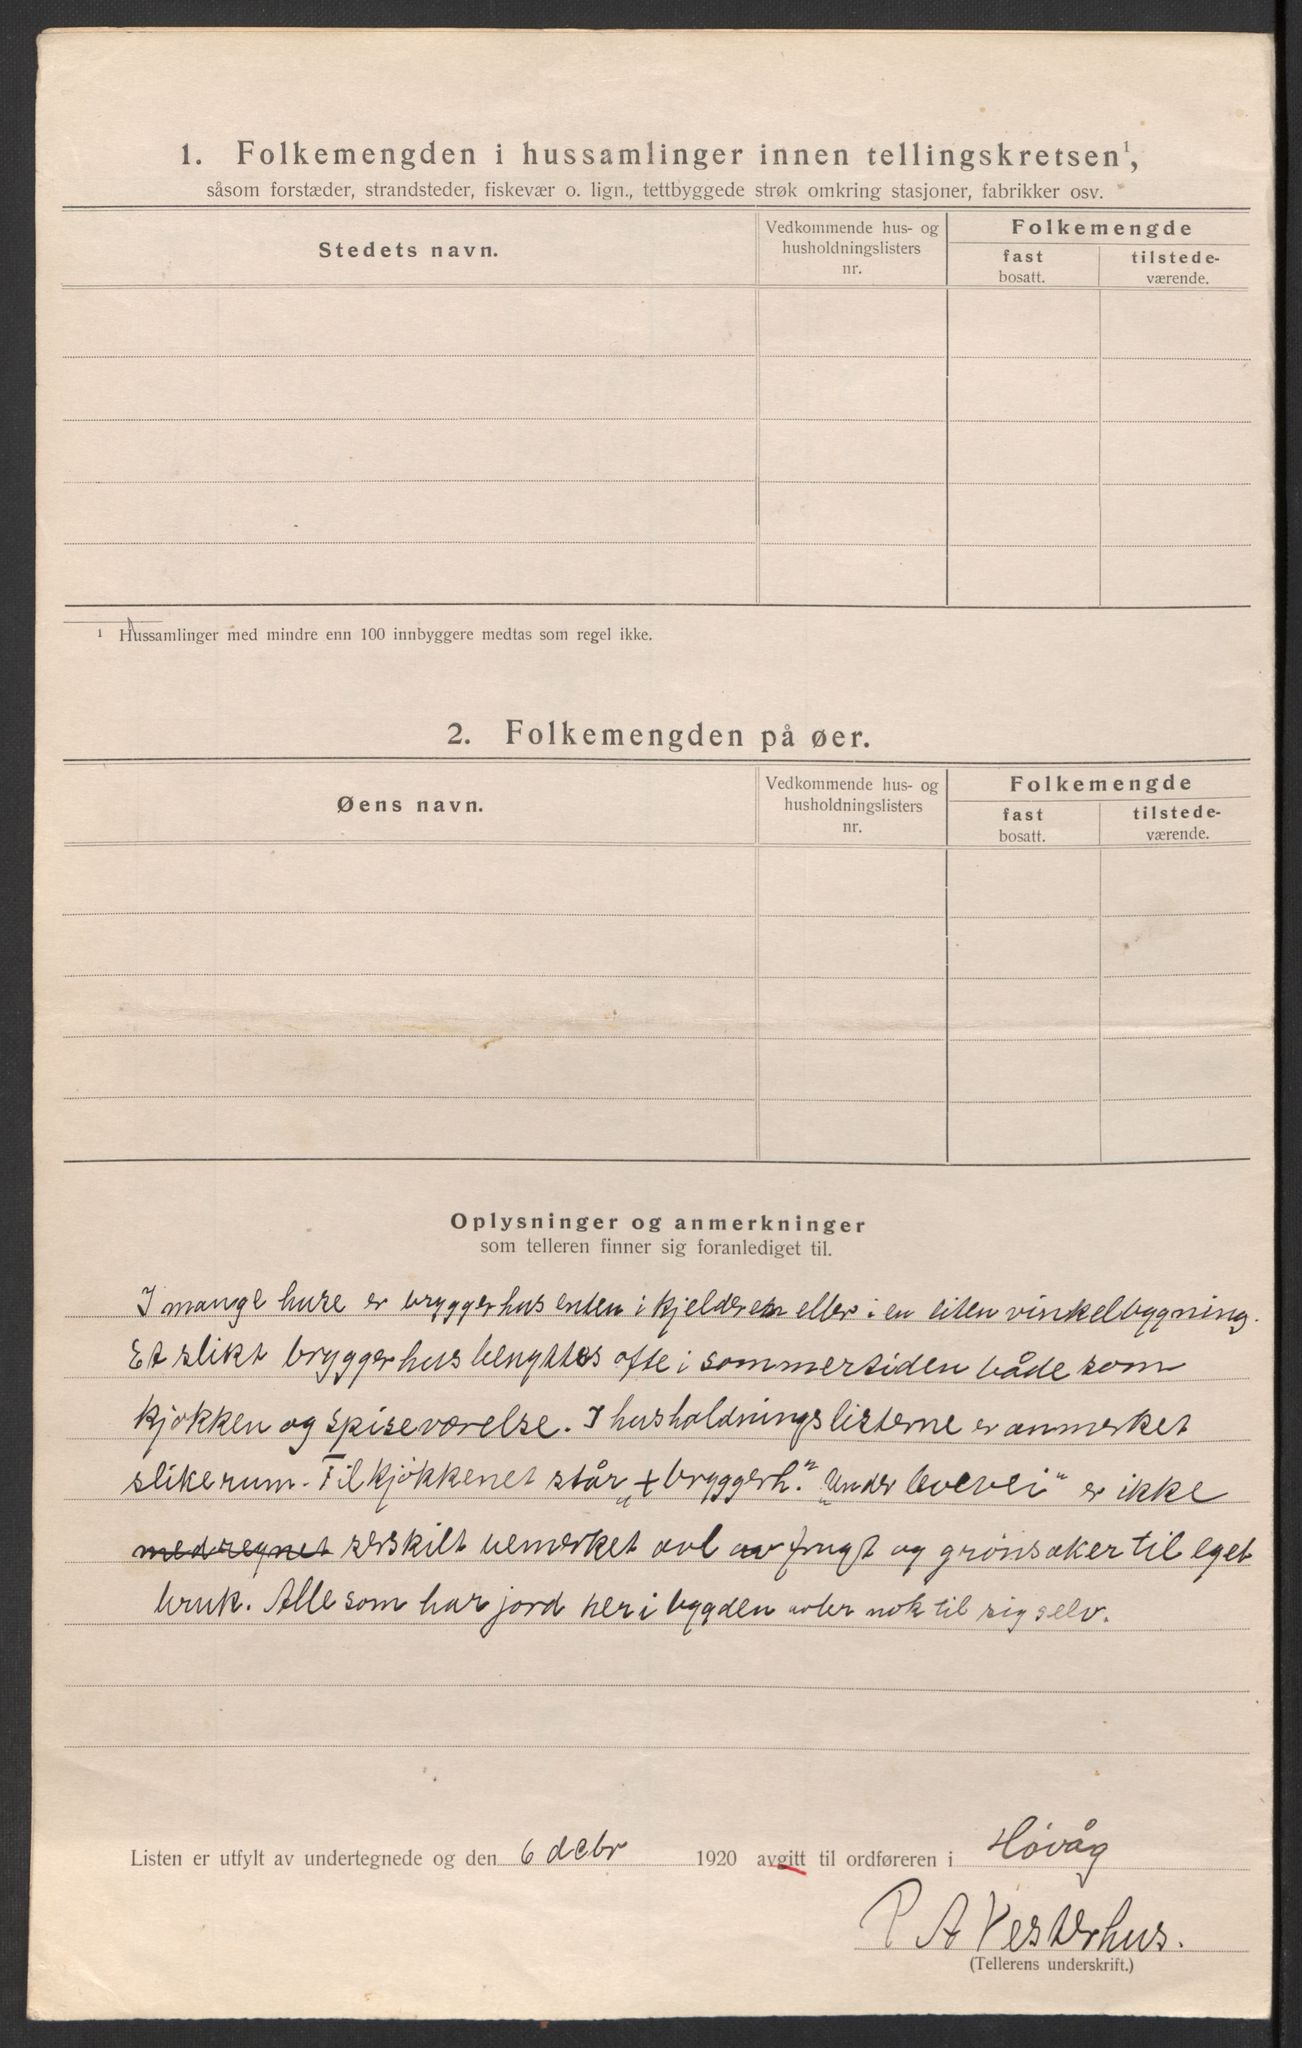 1. Folkemengden i hussamlinger innen tellingskretsen¹,
såsom forstæder, strandsteder, fiskevær o. lign., tettbyggede strøk omkring stasjoner, fabrikker osv.
Stedets navn.
Vedkommende hus- og
husholdningslisters
nr.
Folkemengde
fast
bosatt.
tilstede-
værende.
¹ Hussamlinger med mindre enn 100 innbyggere medtas som regel ikke.
2. Folkemengden på øer.
Øens navn.
Vedkommende hus- og
husholdningslisters
nr.
Folkemengde
fast
bosatt.
tilstede-
værende.
Oplysninger og anmerkninger
som telleren finner sig foranlediget til.
I mange huse er bryggerhus enten i kjelderen eller i en liten vinkelbygning.
Et slikt bryggerhus benyttes ofte i sommertiden både som
kjøkken og spiseværelse. I husholdningslisterne er anmerket
slike rum. Til kjøkkenet står „+ bryggerh." „Under levevei" er ikke
medregnet serskilt bemerket avl av frugt og grønsaker til eget
bruk. Alle som har jord her i bygden avler nok til sig selv.
Listen er utfylt av undertegnede og den 6 decbr 1920 avgitt til ordføreren i Høvåg
P A Vesterhus.
(Tellerens underskrift.)